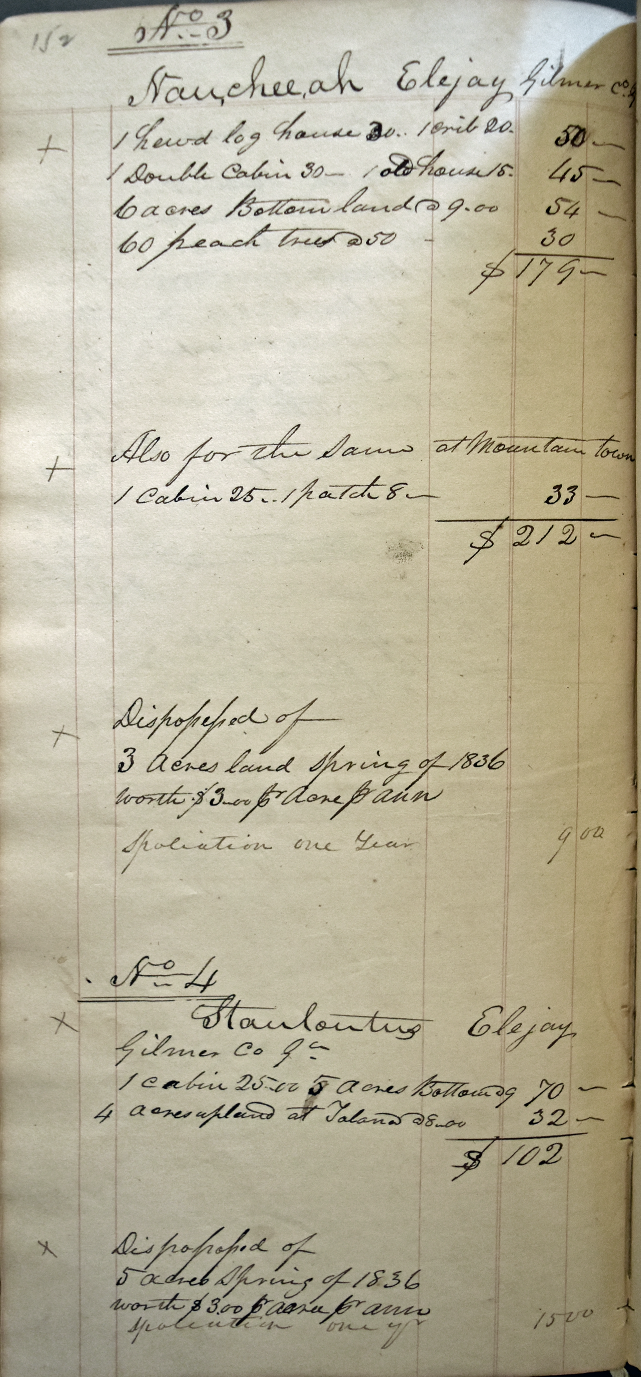 152
No. 3
Naucheeah Elejay Gilmer co.
1 hewd log house 30.. 1 crib 20. 50—
1 Double Cabin 30— 1 old house 15. 45—
6 acres Bottom land @ 9.00 54—
60 peach trees @ 50 30
$ 179—
Also for the Same at Mountain town
1 Cabin 25.. 1 patch 8— 33—
$ 212—
Dispossessed of
3 Acres land Spring of 1836
worth $3.00 pr Acre pr ann
Spoliation one Year 9 00
No. 4
Elejay
Gilmer Co Ga
1 cabin 25.00 5 Acres Bottom @ 9 70—
4 acres upland at @ 8.00 32—
$ 102
Dispossessed of
5 acres Spring of 1836
worth $3.00 pr acre pr ann
Spoliation one yr 15 00